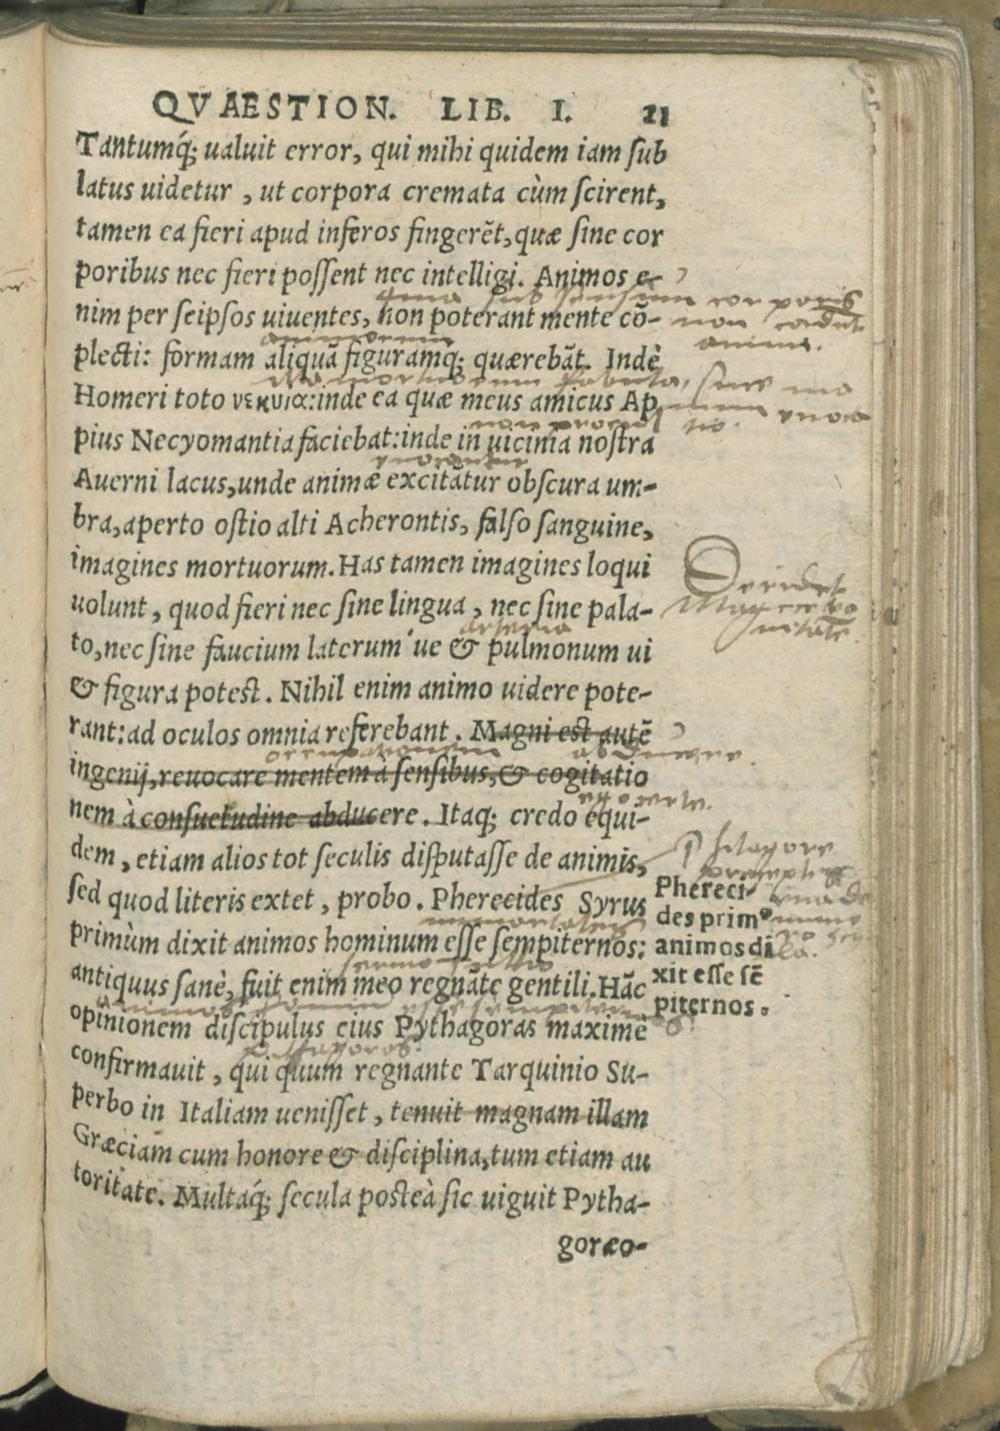 QVAESTION. LIB. I. 21
Tantumq́; ualuit error, qui mihi quidem iam sub
latus uidetur, ut corpora cremata cùm scirent,
tamen ea fieri apud inferos fingerēt, quæ sine cor
poribus nec fieri possent nec intelligi. Animos e-
quia sub sensum corporis
nim per seipsos uiuentes, non poterant mente cō-
non cadit
anima.
animorum
plecti: formam aliquā figuramq́; quærebāt. Indè
mortuorum fabula, siue
Homeri toto νεκυια: inde ea quæ meus amicus Ap
pius Necyomantia faciebat: inde in uicinia nostra
non procul
euocantur
Auerni lacus, unde animæ excitātur obscura um-
bra, aperto ostio alti Acherontis, falso sanguine,
imagines mortuorum. Has tamen imagines loqui
Deridet
uolunt, quod fieri nec sine lingua, nec sine pala-
arteria
to, nec sine faucium laterum'ue & pulmonum ui
& figura potest. Nihil enim animo uidere pote-
rant: ad oculos omnia referebant. Magni est autē
abducere.
ingenij, reuocare mentem à sensibus, & cogitatio
nem à consuetudine abducere. Itaq; credo equi-
ego certe.
dem, etiam alios tot seculis disputasse de animis,
sed quod literis extet, probo. Pherecides Syrus
immortales
primùm dixit animos hominum esse sempiternos:
Phereci-
des primꝰ
animos di
xit esse sē
piternos.
antiquus sanè, fuit enim meo regnāte gentili. Hāc
animos hominum esse sempiternos
opinionem discipulus eius Pythagoras maximè
pithagoras.
confirmauit, qui quum regnante Tarquinio Su-
perbo in Italiam uenisset, tenuit magnam illam
Græciam cum honore & disciplina, tum etiam au
toritate. Multaq́; secula posteà sic uiguit Pytha-
goræo-